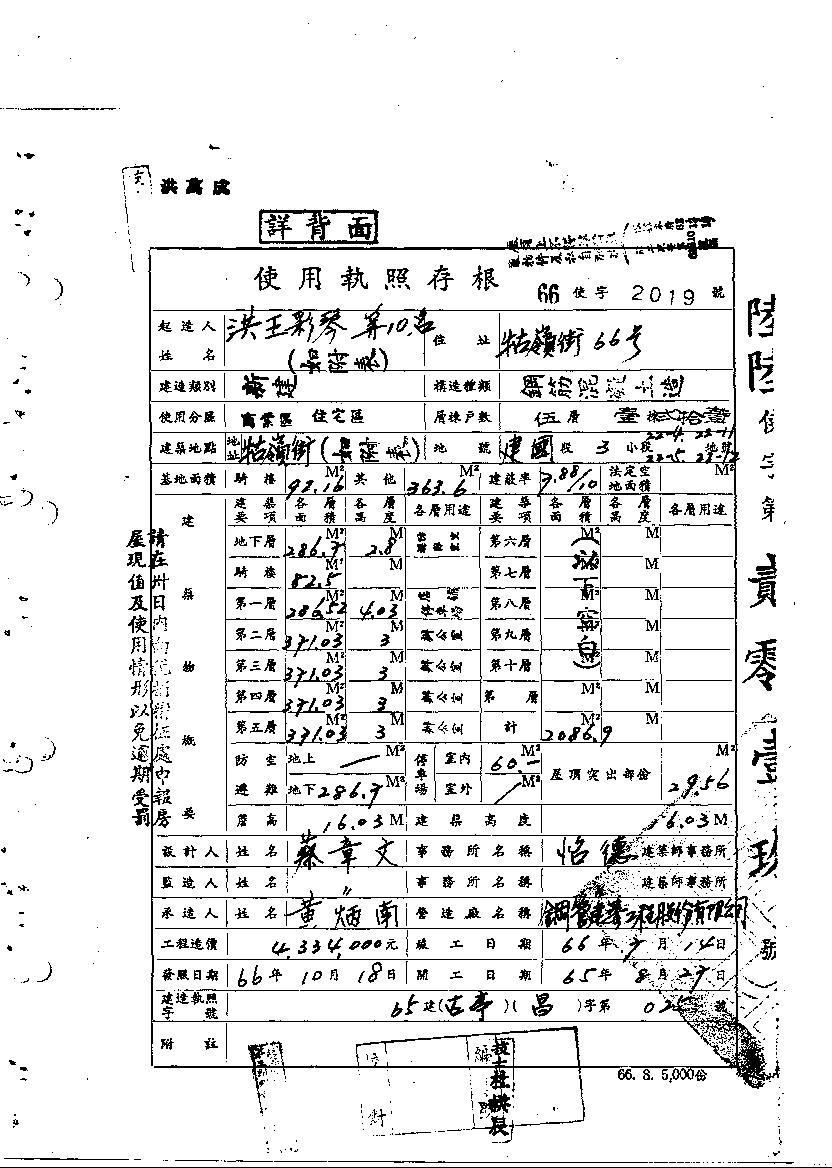 洪萬成
詳背面
使用執照存根
66 使字 2019 號
起造人姓名 洪王彩琴 等10名 (如附表) 住址 牯嶺街66号
建造類別 新建 構造種類 鋼筋混凝土造
使用分區 商業區 住宅區 層棟戶數 伍層 壹棟貳拾壹
建築地點 地址 牯嶺街(如附表) 地號 建國 段 3 小段 22-4. 22-11 22-5 22-12 地號
基地面積 騎樓 92.16 M² 其他 363.6 M² 建蔽率 7.88/10 法定空地面積 M²
建築物概要
建築要項 各層面積 各層高度 各層用途 建築要項 各層面積 各層高度 各層用途
地下層 286.7 M² 2.8 M 第六層 M² M
騎樓 82.5 M² M 第七層 M² M
第一層 286.52 M² 4.03 M 第八層 M² M
第二層 371.03 M² 3 M 第九層 M² M
第三層 371.03 M² 3 M 第十層 M² M
第四層 371.03 M² 3 M 第 層 M² M
第五層 371.03 M² 3 M 計 2086.9 M² M
(以下空白)
防空避難 地上 — M² 停車場 室內 60.- M² 屋頂突出部份 29.56 M²
地下 286.7 室外 / M²
簷高 16.03 M 建築高度 16.03 M
設計人 姓名 蔡章文 事務所名稱 怡德 建築師事務所
監造人 姓名 〃 事務所名稱 〃 建築師事務所
承造人 姓名 黃炳南 營造廠名稱
工程造價 4,334,000元 竣工日期 66年7月14日
發照日期 66年10月18日 開工日期 65年8月27日
建造執照字號 65建(古亭)(昌)字第 025 號
附註
66. 8. 5,000份
請在卅日內向稅捐稽徵處申報房
屋現值及使用情形以免逾期受罰
陸陸使字第貳零壹玖號
校對